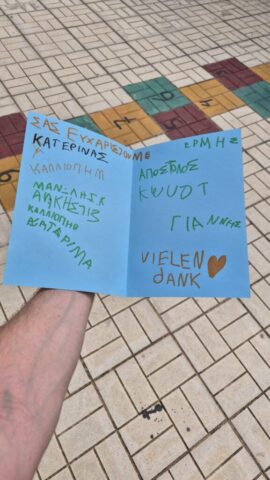 ΣΑΣ ΕΥΧΑΡΙΣΤΟΥΜΕ
ΚΑΤΕΡΙΝΑΣ
ΚΑΛΛΙΟΠΗΜ
ΑΛΚΗΣΤΙΣ
ΚΑΛΛΙΟΠΗΨ
ΚΑΤΕΡΙΜΑ
ΕΡΜΗΣ
ΑΠΟΣΤΟΛΟΣ
ΓΙΑΝΝΗΣ
VIELEN
dANK